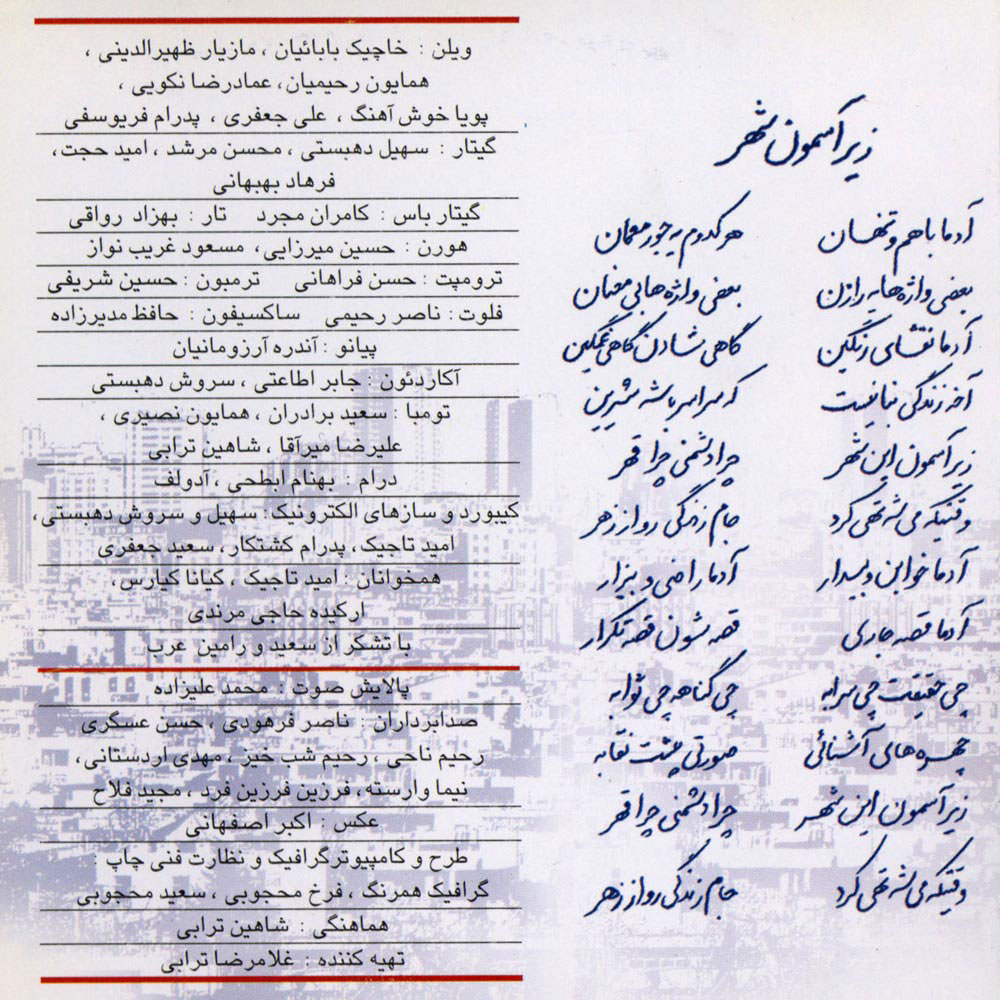 زیر آسمون شهر
آدما با هم و تنهان هر کدوم یه جور معمان
بعضی واژه‌ها یه رازن بعضی واژه‌ها بی معنان
آدما نقشای رنگین گاهی شادن گاهی غمگین
آخه زندگی نیست که سراسر باشه شیرین
زیر آسمون این شهر چرا دشمنی چرا قهر
وقتیکه می‌شه تهی کرد جام زندگی رو از زهر
آدما خوابن و بیدار آدما راضی و بیزار
آدما قصه جاری قصه‌شون قصه تکرار
چی حقیقت چی سرابه چی گناهه چی ثوابه
چهره‌های آشنائی صورتی پشت نقابه
زیر آسمون این شهر چرا دشمنی چرا قهر
وقتیکه می‌شه تهی کرد جام زندگی رو از زهر
ویلن : خاچیک بابائیان ، مازیار ظهیرالدینی ،
همایون رحیمیان، عمادرضا نکویی ،
پویا خوش آهنگ ، علی جعفری ، پدرام فریوسفی
گیتار : سهیل دهبستی ، محسن مرشد ، امید حجت،
فرهاد بهبهانی
گیتار باس : کامران مجرد تار : بهزاد رواقی
هورن : حسین میرزایی، مسعود غریب نواز
ترومپت : حسن فراهانی ترمبون : حسین شریفی
فلوت : ناصر رحیمی ساکسیفون : حافظ مدیرزاده
پیانو : آندره آرزومانیان
آکاردئون : جابر اطاعتی ، سروش دهبستی
تومبا : سعید برادران ، همایون نصیری ،
علیرضا میرآقا ، شاهین ترابی
درام : بهنام ابطحی ، آدولف
کیبورد و سازهای الکترونیک: سهیل و سروش دهبستی،
امید تاجیک، پدرام کشتکار، سعید جعفری
همخوانان : امید تاجیک ، کیانا کیارس،
ارکیده حاجی مرندی
با تشکر از سعید و رامین عرب
پالایش صوت : محمد علیزاده
صدابرداران : ناصر فرهودی ، حسن عسگری
رحیم ناحی ، رحیم شب خیز ، مهدی اردستانی،
نیما وارسته، فرزین فرزین فرد ، مجید فلاح
عکس : اکبر اصفهانی
طرح و کامپیوتر گرافیک و نظارت فنی چاپ :
گرافیک همرنگ ، فرخ محجوبی ، سعید محجوبی
هماهنگی : شاهین ترابی
تهیه کننده : غلامرضا ترابی